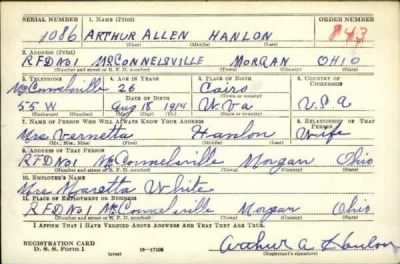 SERIAL NUMBER 1. NAME (Print) ORDER NUMBER
1086 ARTHUR ALLEN HANLON 843
(First) (Middle) (Last)
2. ADDRESS (Print)
RFD No1 McCONNELSVILLE MORGAN OHIO
(Number and street or R. F. D. number) (Town) (County) (State)
3. TELEPHONE 4. AGE IN YEARS 5. PLACE OF BIRTH 6. COUNTRY OF CITIZENSHIP
McConnelsville 26 Cairo
DATE OF BIRTH (Town or county)
55 W Aug 18 1914 W. Va U.S.A
7. NAME OF PERSON WHO WILL ALWAYS KNOW YOUR ADDRESS 8. RELATIONSHIP OF THAT PERSON
Mrs Vernetta Hanlon Wife
(Mr., Mrs., Miss) (First) (Middle) (Last)
9. ADDRESS OF THAT PERSON
RFD No1 McConnelsville Morgan Ohio
(Number and street or R. F. D. number) (Town) (County) (State)
10. EMPLOYER'S NAME
Mrs Maretta White
11. PLACE OF EMPLOYMENT OR BUSINESS
RFD No1 McConnelsville Morgan Ohio
(Number and street or R. F. D. number) (Town) (County) (State)
I AFFIRM THAT I HAVE VERIFIED ABOVE ANSWERS AND THAT THEY ARE TRUE.
REGISTRATION CARD
D. S. S. Form 1 (over) Arthur A Hanlon
(Registrant's signature)